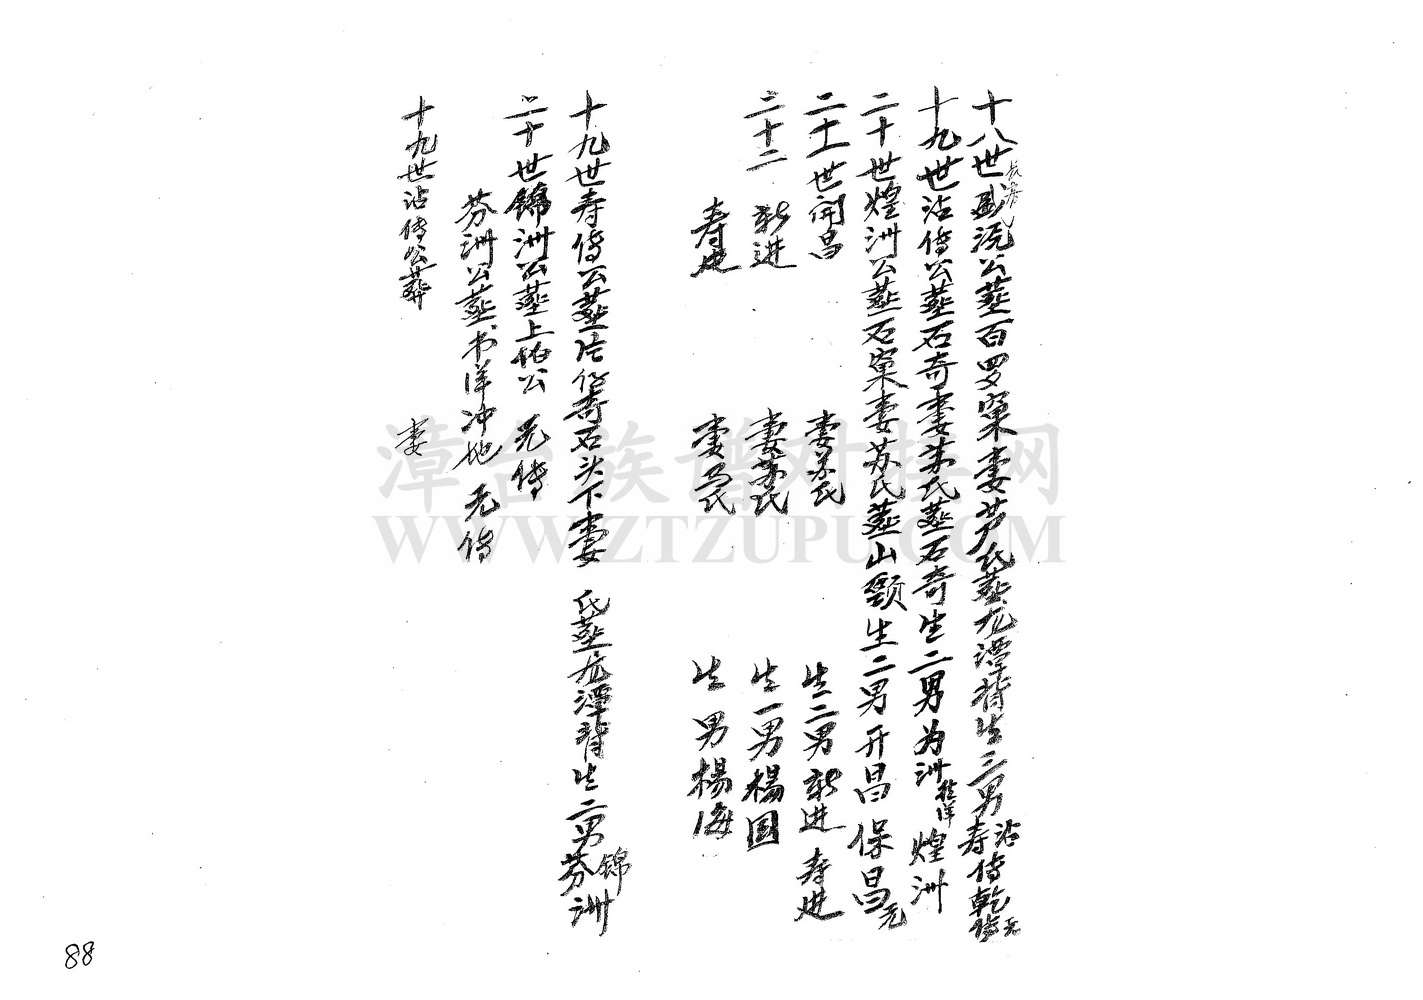 十八世 公塟百罗窠妻芦氏塟尫潭背生三男沾寿传乾传无
十九世沾传公塟石奇妻朱氏塟石奇生二男为洲 煌洲
二十世煌洲公塟石窠妻苏氏塟山颈生二男开昌保昌无
二十一世开昌 妻苏氏 生二男新进寿进
二十二 新进 妻苏氏 生一男楊国
寿进 妻 氏 生男楊海
十九世寿传公塟 奇石头下妻 氏塟尫潭背生二男锦芬洲
二十世锦洲公塟上 公 无传
芬洲公塟书洋冲地 无传
十九世沾传公葬 妻
漳台族谱对接网
WWW.ZTZUPU.COM
88